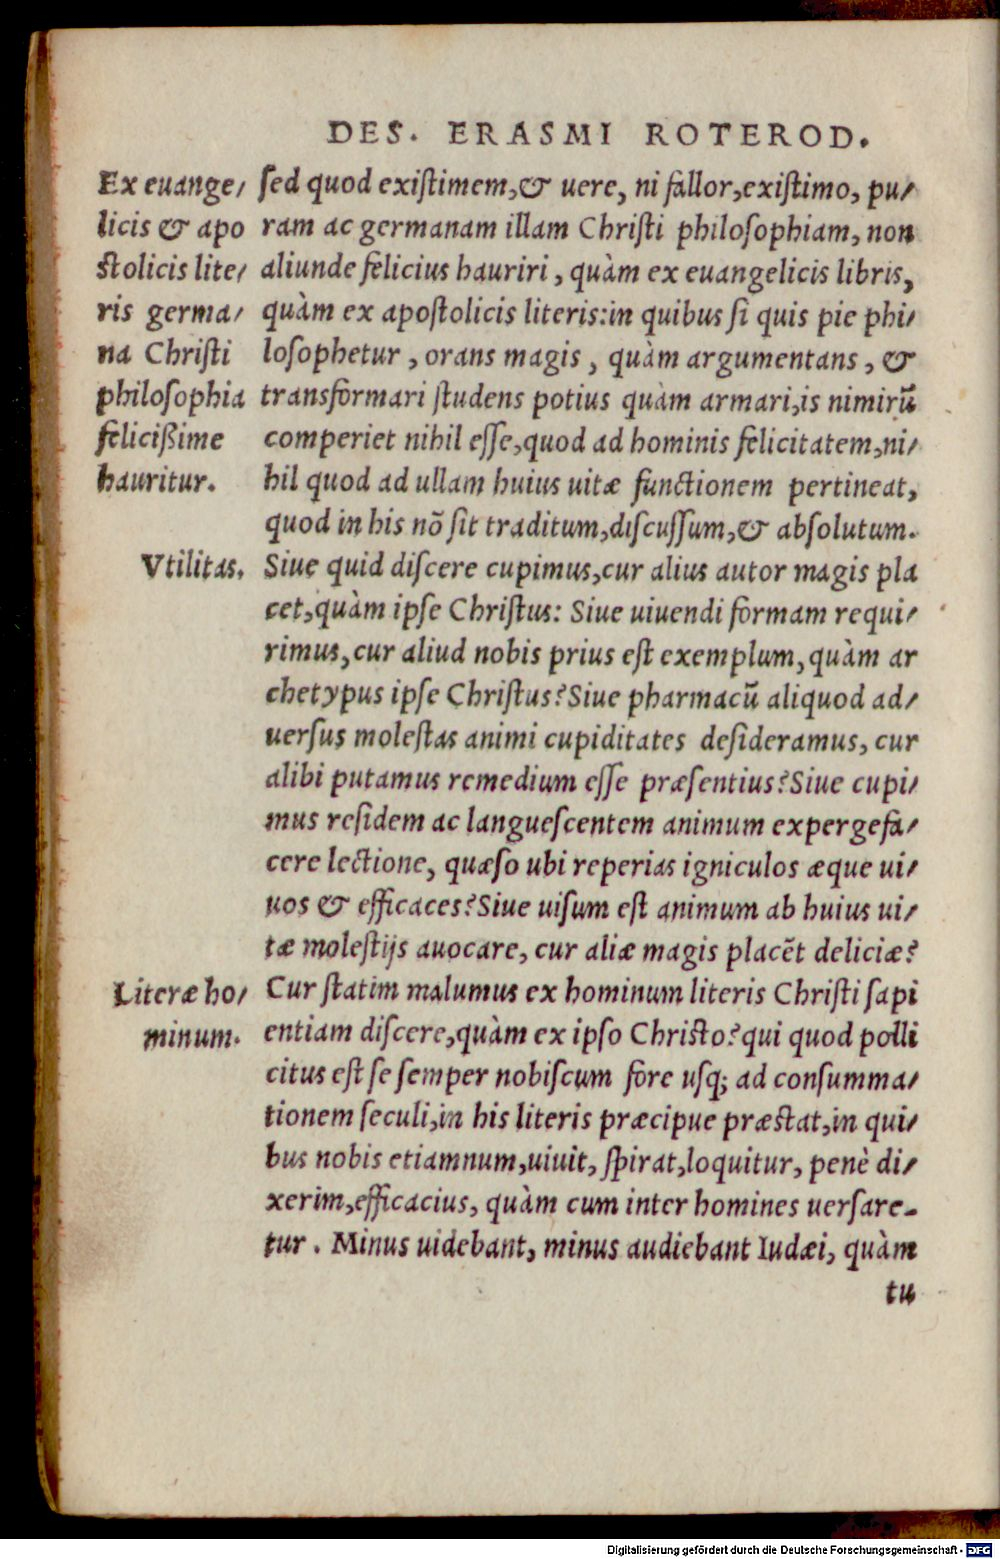 DES. ERASMI ROTEROD.
Ex euange/
licis & apo
stolicis lite/
ris germa/
na Christi
philosophia
felicißime
hauritur.
sed quod existimem,& uere, ni fallor,existimo, pu/
ram ac germanam illam Christi philosophiam, non
aliunde felicius hauriri, quàm ex euangelicis libris,
quàm ex apostolicis literis:in quibus si quis pie phi/
losophetur, orans magis, quàm argumentans, &
transformari studens potius quàm armari,is nimirũ
comperiet nihil esse,quod ad hominis felicitatem,ni/
hil quod ad ullam huius uitæ functionem pertineat,
quod in his nõ sit traditum,discussum,& absolutum.
Vtilitas.
Siue quid discere cupimus,cur alius autor magis pla
cet,quàm ipse Christus: Siue uiuendi formam requi/
rimus,cur aliud nobis prius est exemplum,quàm ar
chetypus ipse Christus?Siue pharmacũ aliquod ad/
uersus molestas animi cupiditates desideramus, cur
alibi putamus remedium esse præsentius?Siue cupi/
mus residem ac languescentem animum expergefa/
cere lectione, quæso ubi reperias igniculos æque ui/
uos & efficaces?Siue uisum est animum ab huius ui/
tæ molestijs auocare, cur aliæ magis placẽt deliciæ?
Literæ ho/
minum.
Cur statim malumus ex hominum literis Christi sapi
entiam discere,quàm ex ipso Christo?qui quod polli
citus est se semper nobiscum fore usq; ad consumma/
tionem seculi,in his literis præcipue præstat,in qui/
bus nobis etiamnum,uiuit, spirat,loquitur, penè di/
xerim,efficacius, quàm cum inter homines uersare-
tur. Minus uidebant, minus audiebant Iudæi, quàm
tu
Digitalisierung gefördert durch die Deutsche Forschungsgemeinschaft - DFG